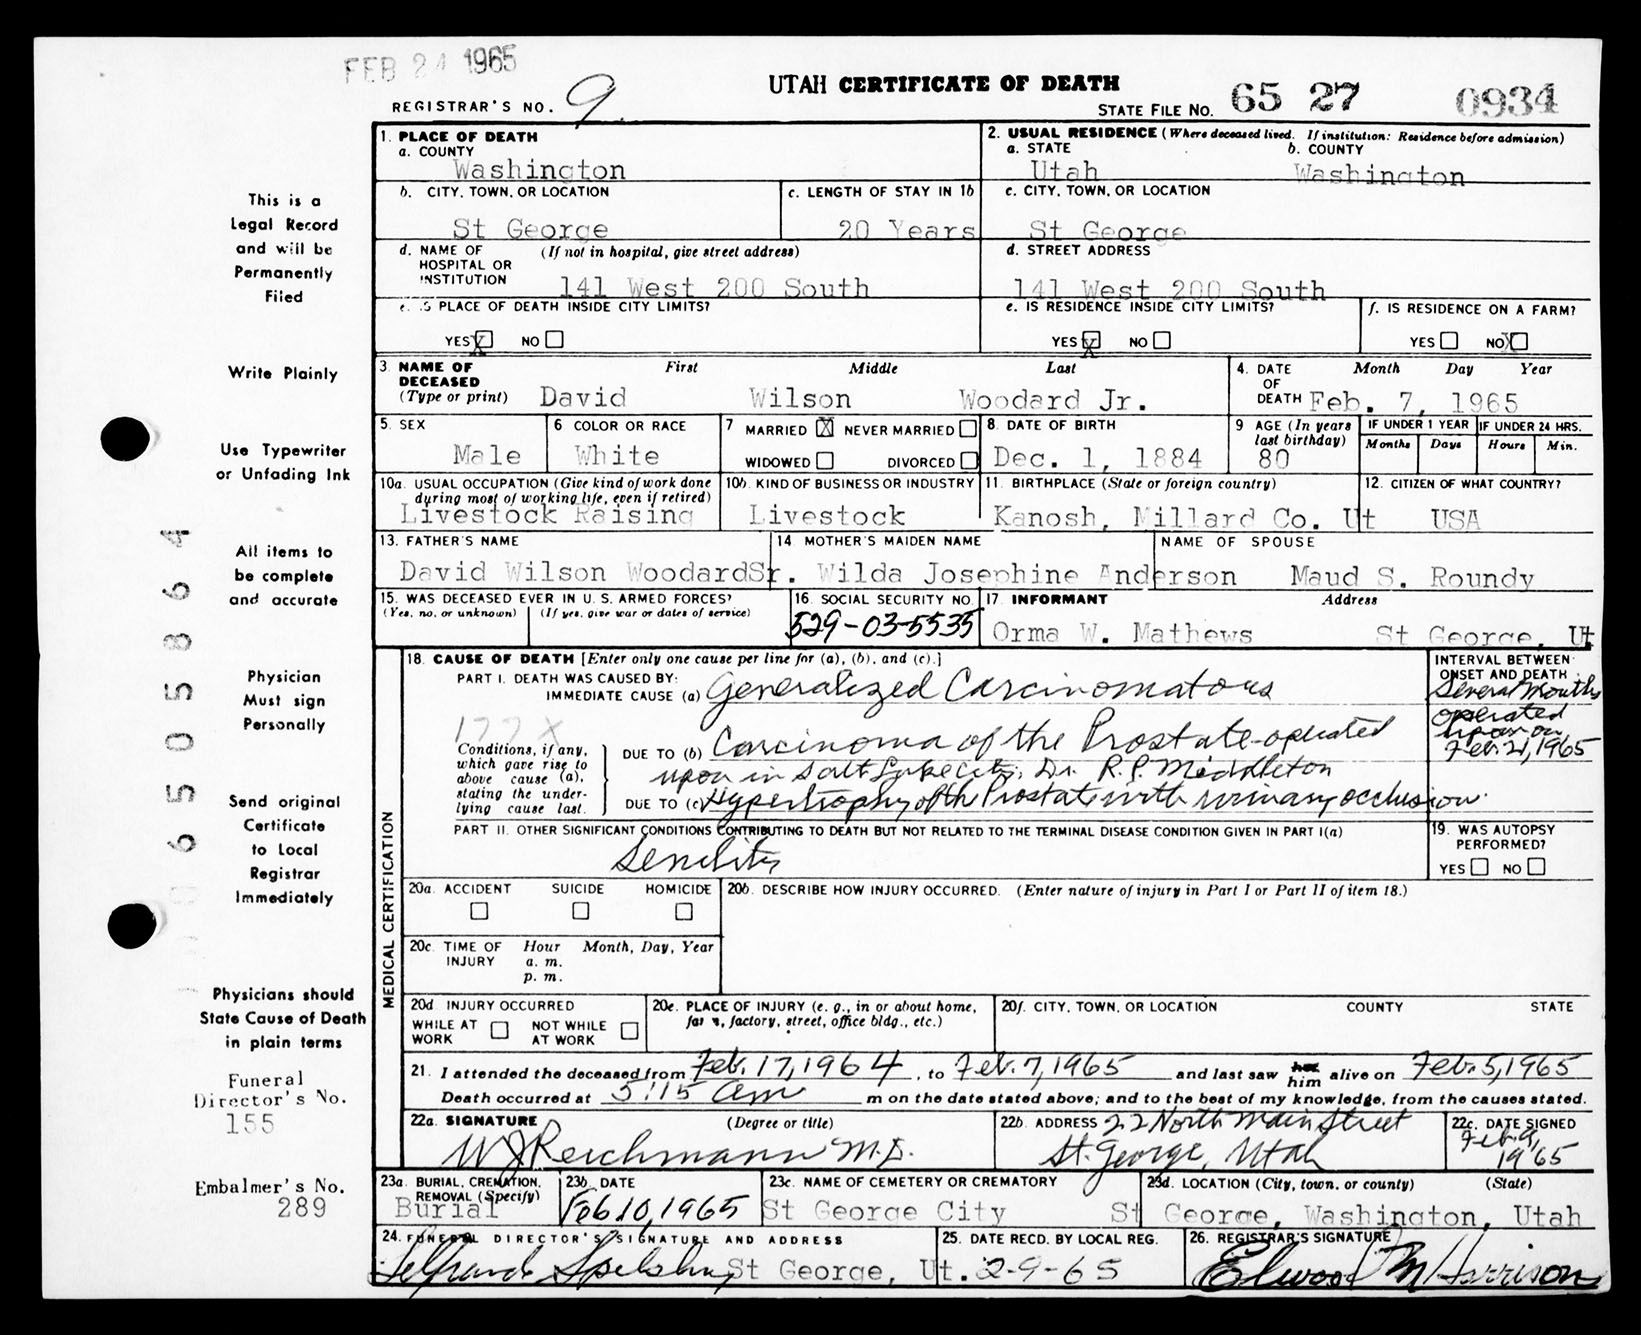 FEB 24 1965
UTAH CERTIFICATE OF DEATH
REGISTRAR'S NO. 9
STATE FILE NO. 65 27 0934
This is a
Legal Record
and will be
Permanently
Filed
Write Plainly
Use Typewriter
or Unfading Ink
All items to
be complete
and accurate
Physician
Must sign
Personally
Send original
Certificate
to Local
Registrar
Immediately
Physicians should
State Cause of Death
in plain terms
Funeral
Director's No.
155
Embalmer's No.
289
065505864
1. PLACE OF DEATH
a. COUNTY
Washington
2. USUAL RESIDENCE (Where deceased lived. If institution: Residence before admission)
a. STATE b. COUNTY
Utah Washington
b. CITY, TOWN, OR LOCATION
St George
c. LENGTH OF STAY IN 1b
20 Years
c. CITY, TOWN, OR LOCATION
St George
d. NAME OF (If not in hospital, give street address)
HOSPITAL OR
INSTITUTION
141 West 200 South
d. STREET ADDRESS
141 West 200 South
e. IS PLACE OF DEATH INSIDE CITY LIMITS?
YES X NO
e. IS RESIDENCE INSIDE CITY LIMITS?
YES X NO
f. IS RESIDENCE ON A FARM?
YES NO X
3. NAME OF First Middle Last
DECEASED
(Type or print) David Wilson Woodard Jr.
4. DATE Month Day Year
OF
DEATH Feb. 7, 1965
5. SEX
Male
6 COLOR OR RACE
White
7 MARRIED X NEVER MARRIED
WIDOWED DIVORCED
8. DATE OF BIRTH
Dec. 1, 1884
9 AGE (In years
last birthday)
80
IF UNDER 1 YEAR
Months Days
IF UNDER 24 HRS.
Hours Min.
10a. USUAL OCCUPATION (Give kind of work done
during most of working life, even if retired)
Livestock Raising
10b. KIND OF BUSINESS OR INDUSTRY
Livestock
11. BIRTHPLACE (State or foreign country)
Kanosh, Millard Co. Ut
12. CITIZEN OF WHAT COUNTRY?
USA
13. FATHER'S NAME
David Wilson Woodard Sr.
14. MOTHER'S MAIDEN NAME
Wilda Josephine Anderson
NAME OF SPOUSE
Maud S. Roundy
15. WAS DECEASED EVER IN U.S. ARMED FORCES?
(Yes, no, or unknown) (If yes, give war or dates of service)
16. SOCIAL SECURITY NO.
529-03-5535
17. INFORMANT Address
Orma W. Mathews St George, Ut
MEDICAL CERTIFICATION
18. CAUSE OF DEATH [Enter only one cause per line for (a), (b), and (c).]
PART I. DEATH WAS CAUSED BY:
IMMEDIATE CAUSE (a) Generalized Carcinomatous
INTERVAL BETWEEN
ONSET AND DEATH
Several Months
177X
Conditions, if any,
which gave rise to
above cause (a),
stating the under-
lying cause last.
DUE TO (b) Carcinoma of the Prostate-operated
upon in Salt Lake City, Dr. R.P. Middleton
operated
upon on
Feb. 21, 1965
DUE TO (c) Hypertrophy of the Prostate with urinary occlusion.
PART II. OTHER SIGNIFICANT CONDITIONS CONTRIBUTING TO DEATH BUT NOT RELATED TO THE TERMINAL DISEASE CONDITION GIVEN IN PART I(a)
Senility
19. WAS AUTOPSY
PERFORMED?
YES NO
20a. ACCIDENT SUICIDE HOMICIDE
20b. DESCRIBE HOW INJURY OCCURRED. (Enter nature of injury in Part I or Part II of item 18.)
20c. TIME OF Hour Month, Day, Year
INJURY a. m.
p. m.
20d INJURY OCCURRED
WHILE AT NOT WHILE
WORK AT WORK
20e. PLACE OF INJURY (e. g., in or about home,
farm, factory, street, office bldg., etc.)
20f. CITY, TOWN, OR LOCATION COUNTY STATE
21. I attended the deceased from Feb. 17, 1964, to Feb. 7, 1965 and last saw her him alive on Feb. 5, 1965
Death occurred at 5:15 am m on the date stated above; and to the best of my knowledge, from the causes stated.
22a. SIGNATURE (Degree or title)
W J Reichmann M.D.
22b. ADDRESS 22 North Main Street
St. George, Utah
22c. DATE SIGNED
Feb. 9,
1965
23a. BURIAL, CREMATION,
REMOVAL (Specify)
Burial
23b DATE
Feb 10, 1965
23c. NAME OF CEMETERY OR CREMATORY
St George City
23d. LOCATION (City, town, or county) (State)
St George, Washington, Utah
24. FUNERAL DIRECTOR'S SIGNATURE AND ADDRESS
St George, Ut.
25. DATE RECD. BY LOCAL REG.
2-9-65
26. REGISTRAR'S SIGNATURE
Elwood M Harrison